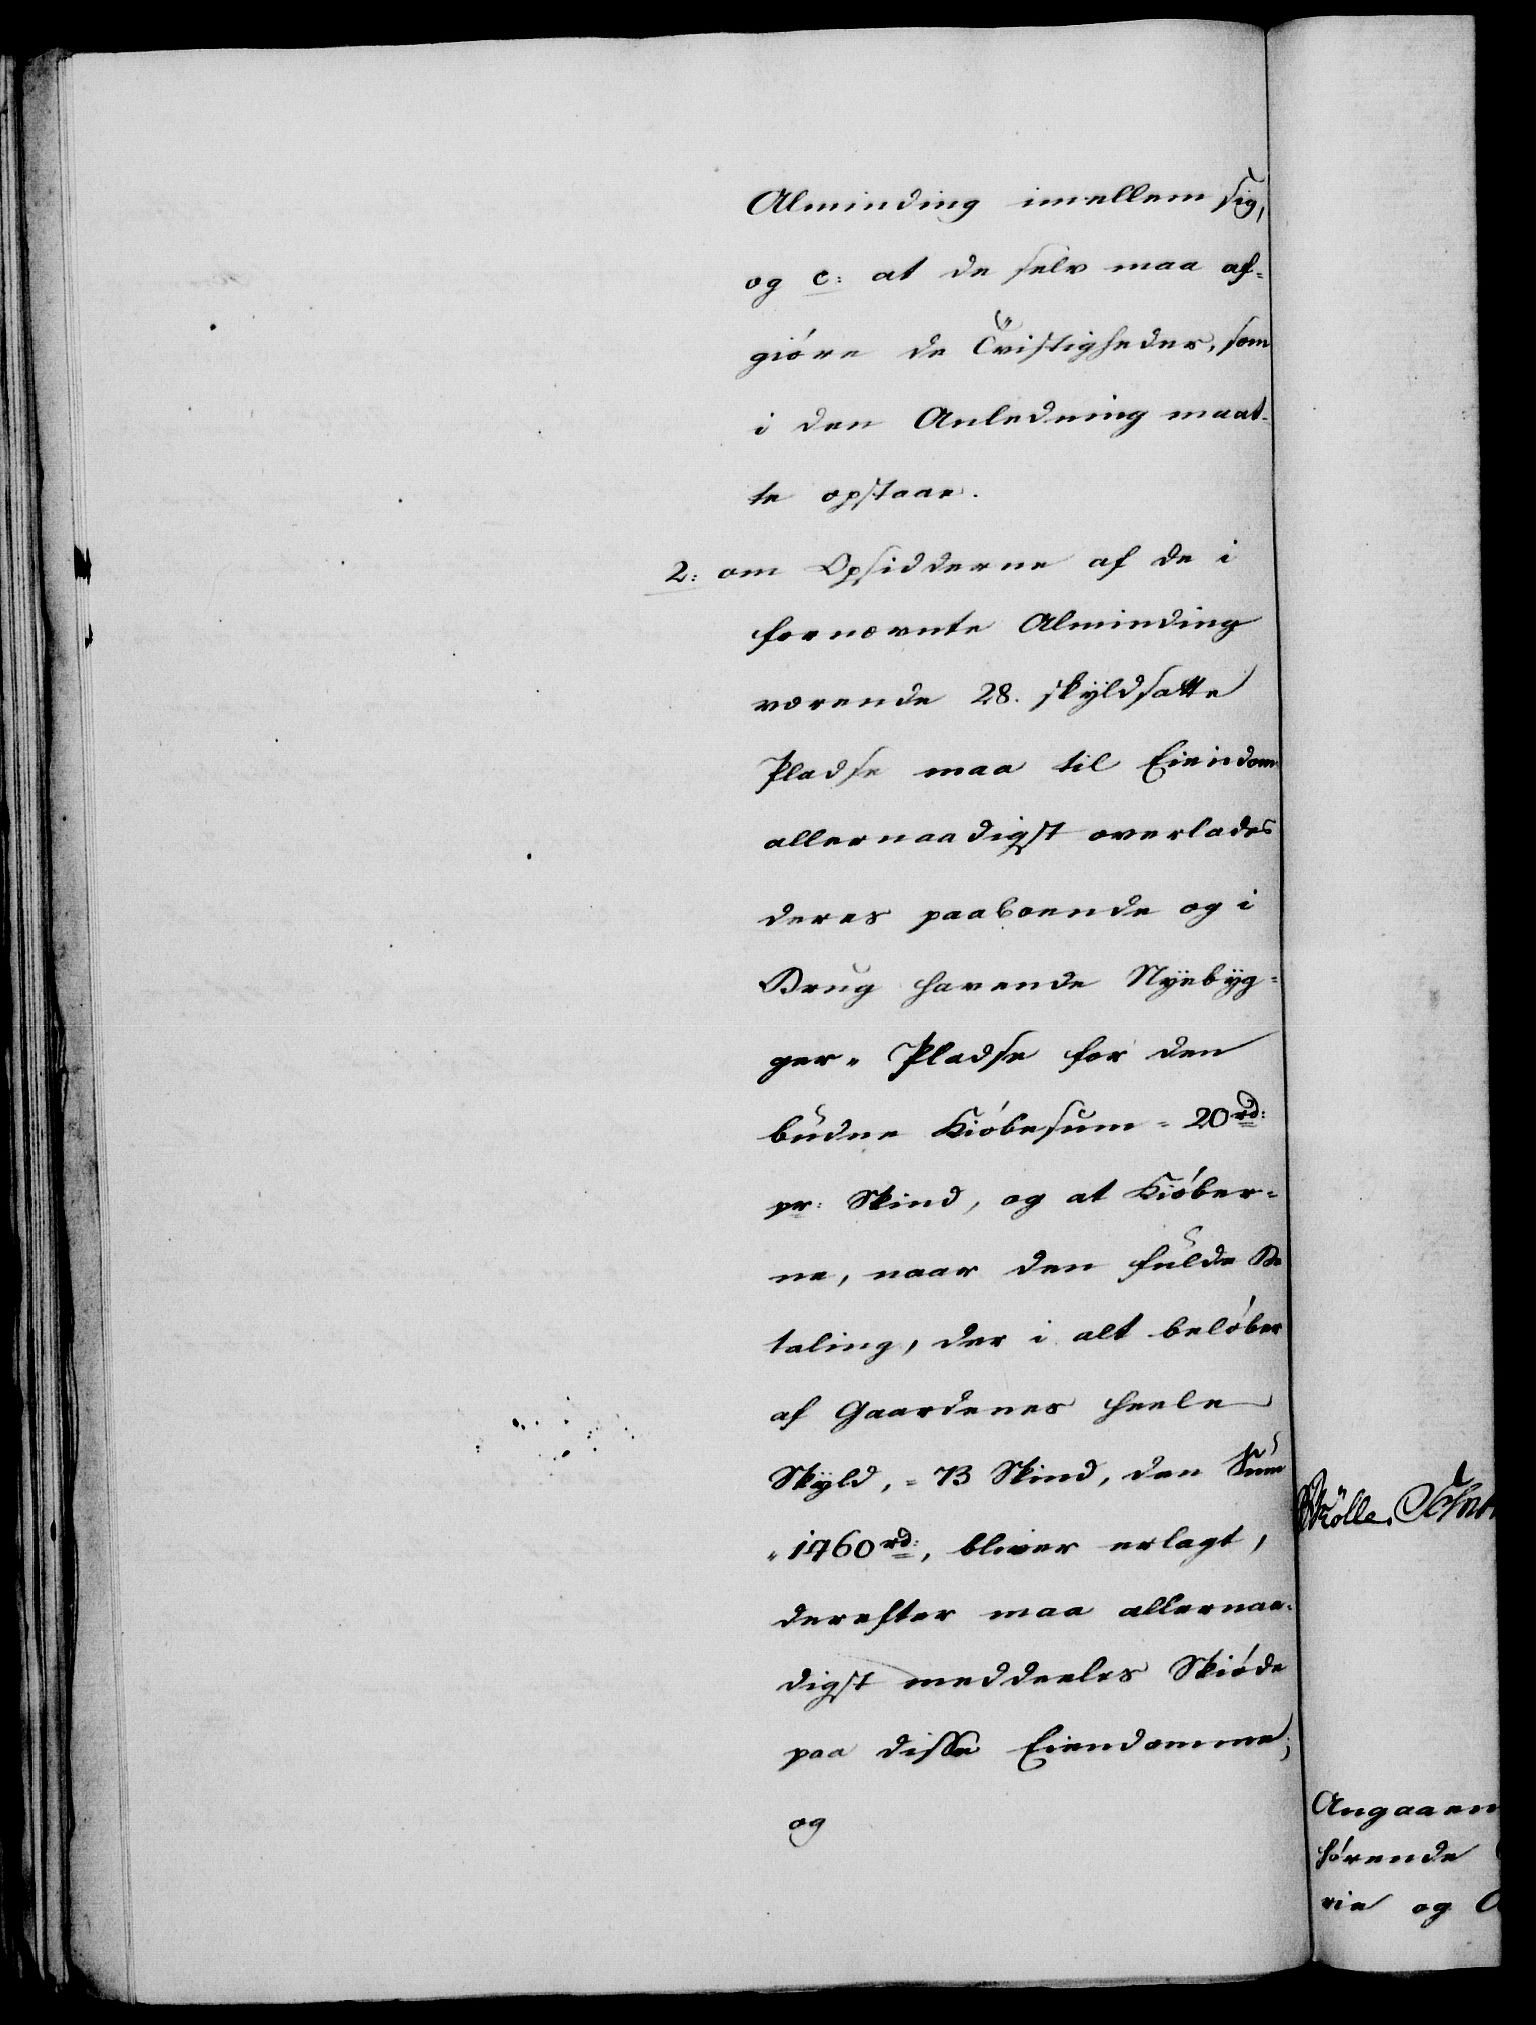 Alminding imellem sig,
og c: at de selv maa af=
giöre de Tvistigheder, som
i den Anledning maat-
te opstaae.
2: om Opsidderne af de i
fornævnte Alminding
værende 28. skyldsatte
Pladse maa til Eiendom
allernaadigst overlades
deres paaboende og i
Brug havende Nyebyg=
ger- Pladse for den
budne Kiöbesum = 20 rd:
pr: Skind, og at Kiöber=
ne, naar den fulde Be
taling, der i alt belöber
af Gaardenes heele
Skyld, = 73 Skind, den Sum
" 1460 rd:, bliver erlagt,
derefter maa allernaa-
digst meddeeles Skiöde
paa disse Eiendomme,
og
Angaaen
hörende
rie og